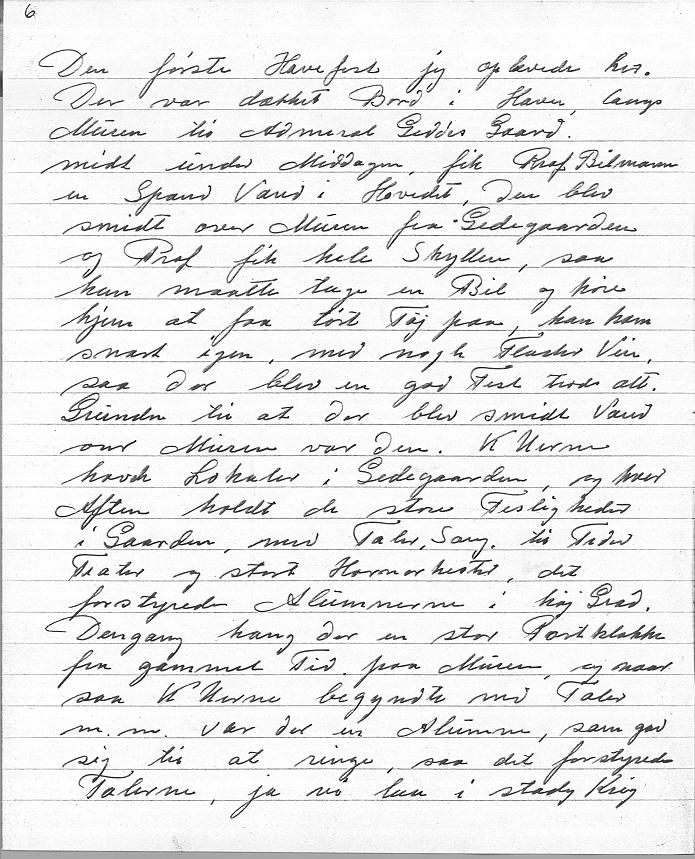 6
Den første Havefest jeg oplevede her.
Der var dækket Bord i Haven, langs
Muren til Admiral Geddes Gaard.
midt under Middagen, fik Prof Bilmann
en Spand Vand i Hovedet, den blev
smidt over Muren fra Gedegaarden
og Prof fik hele Skyllen, saa
han maatte tage en Bil og køre
hjem at faa tørt Tøj paa, han kom
snart igen, med nogle Flasker Vin,
saa der blev en god Fest trods alt.
Grunden til at der blev smidt Vand
over Muren var den. K Uerne
havde Lokaler i Gedegaarden, og hver
Aften holdt de store Festligheder
i Gaarden, med Taler, Sang, til Tider
Teater og stort Hornorkester, det
forstyrede Alumnerne i høj Grad.
Dengang hang der en stor Portklokke
fra gammel Tid paa Muren, og naar
saa K Uerne begyndte med Taler
m.m. var der en Alumne, som gav
sig til at ringe, saa det forstyrede
Talerne, ja vi leve i stadig Krig